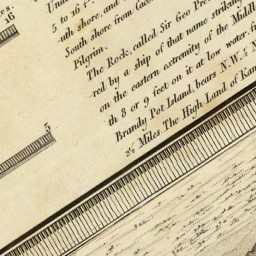 es.
16
5
Und
5 to 26 F
uth shore, and
South shore from Caco
Pilgrim.
The Rock, called Sir Geo Pre
red by a ship of that name striking
on the eastern extremity of the Middl
th 8 or 9 feet on it at low water, f
Brandy Pot Island, bears N.W. ¼ N
2½ Miles. The High Land of Kam